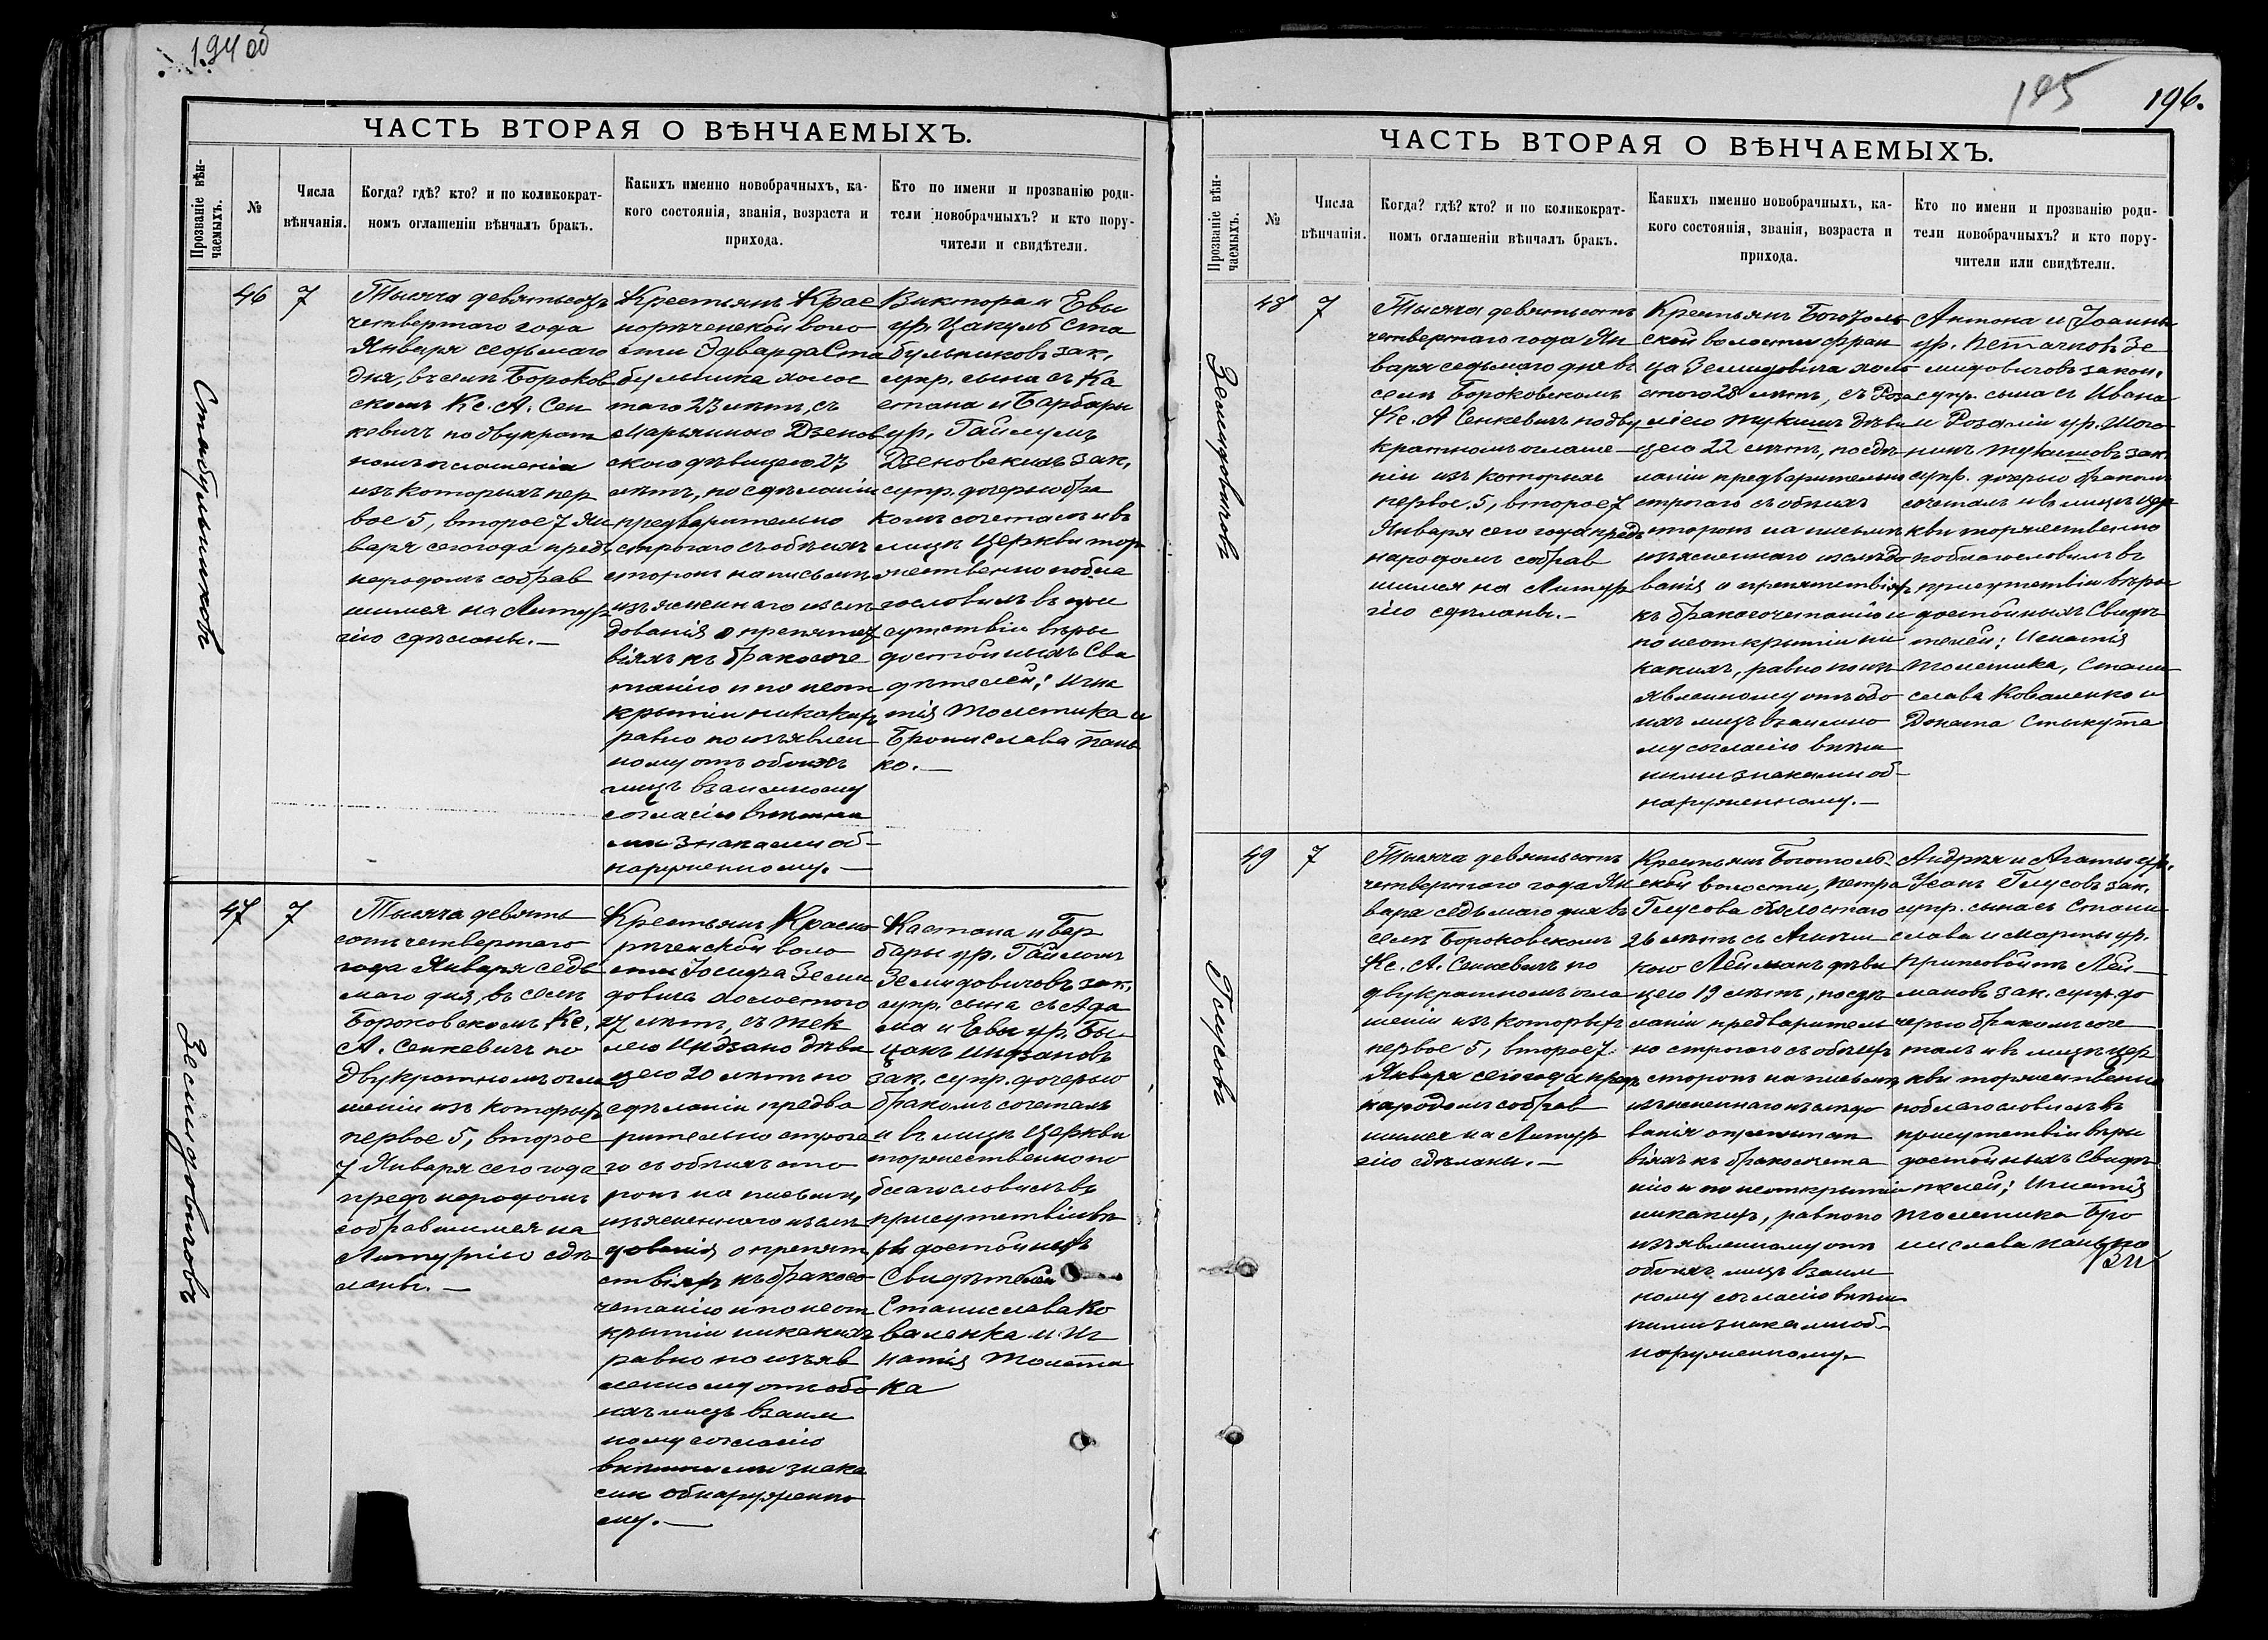 194 об
ЧАСТЬ ВТОРАЯ О ВѢНЧАЕМЫХЪ.
Прозваніе вѣн-
чаемыхъ.
№
Числа
вѣнчанія.
Когда? гдѣ? кто? и по коликократ-
номъ оглашеніи вѣнчалъ бракъ.
Какихъ именно новобрачныхъ, ка-
кого состоянія, званія, возраста и
прихода.
Кто по имени и прозванію роди-
тели новобрачныхъ? и кто пору-
чители и свидѣтели.
Стабульниковъ
46
7
Тысяча девятьсотъ
четвертаго года
Января седьмаго
дня, въ селѣ Борков
скомъ Кс. А. Сен
кевичъ по двукрат
номъ оглашеніи
изъ которыхъ пер
вое 5, второе 7 Ян
варя сего года предъ
народомъ собрав
шимся на Литур
гію сдѣланы. —
Крестьянъ Крас
норѣченской воло
сти Эдварда Ста
бульника холос
таго 23 лѣтъ, съ
Марьянною Дзенов
скою дѣвицею 23
лѣтъ, по сдѣланіи
предварительно
строгаго съ обѣихъ
сторонъ на письмѣ
изъясненнаго изслѣ
дованія о препятст
віяхъ къ бракосоче
танію и по неот
крытіи никакихъ
равно по изъявлен
ному отъ обоихъ
лицъ взаимному
согласію внѣшни
ми знаками об-
наруженному. —
Виктора и Евы
ур. Цакуль Ста
бульниковъ зак.
супр. сына съ Ка
етана и Барбары
ур. Гайлумъ
Дзеновскихъ зак.
супр. дочерью бра
комъ сочеталъ и въ
лицѣ Церкви тор
жественно побла
гословилъ въ при
сутствіи вѣры
достойныхъ Сви
дѣтелей: Игна
тія Толстика и
Бронислава Пань
ко. —
Земидовичовъ
47
7
Тысяча девять
сотъ четвертаго
года Января седь
маго дня, въ селѣ
Борковскомъ Кс.
А. Сенкевичъ по
двукратномъ огла
шеніи изъ которыхъ
первое 5, второе
7 Января сего года
предъ народомъ
собравшимся на
Литургію сдѣ
ланы. —
Крестьянъ Красно
рѣченской воло
сти Іосифа Земи
довича холостого
27 лѣтъ, съ Тек
лею Индзано дѣви
цею 20 лѣтъ по
сдѣланіи предва
рительно строга
го съ обѣихъ сто
ронъ на письмѣ,
изъясненнаго изслѣ
дованія о препят
ствіяхъ къ бракосо
четанію и по неот
крытіи никакихъ
равно по изъяв
ленному отъ обо
ихъ лицъ взаим
ному согласію
внѣшними знака
ми обнаруженно
му. —
Каетана и Бар
бары ур. Гайлюмъ
Земидовичовъ зак.
супр. сына съ Ада
ма и Евы ур. Бы-
цанъ Индзановъ
зак. супр. дочерью
бракомъ сочеталъ
и въ лицѣ Церкви
торжественно по
благословилъ въ
присутствіи вѣ
ры достойныхъ
Свидѣтелей
Станислава Ко
валенка и Иг
натія Толсти
ка
195
196.
ЧАСТЬ ВТОРАЯ О ВѢНЧАЕМЫХЪ.
Прозваніе вѣн-
чаемыхъ.
№
Числа
вѣнчанія.
Когда? гдѣ? кто? и по коликократ-
номъ оглашеніи вѣнчалъ бракъ.
Какихъ именно новобрачныхъ, ка-
кого состоянія, званія, возраста и
прихода.
Кто по имени и прозванію роди-
тели новобрачныхъ? и кто пору-
чители или свидѣтели.
Земидовичовъ
48
7
Тысяча девятьсотъ
четвертаго года Ян
варя седьмаго дня въ
селѣ Борковскомъ
Кс. А Сенкевичъ по дву
кратномъ оглаше
ніи изъ которыхъ
первое 5, второе 7
Января сего года предъ
народомъ собрав
шимся на Литур
гію сдѣланы. —
Крестьянъ Боготоль
ской волости Фран
ца Земидовича холо
стого 28 лѣтъ, съ Роза
ліею Тукишъ дѣви
цею 22 лѣтъ, по сдѣ
ланіи предварительно
строгаго съ обѣихъ
сторонъ на письмѣ
изъясненнаго изслѣдо
ванія о препятствіяхъ
къ бракосочетанію и
по неоткрытіи ни
какихъ, равно по изъ
явленному отъ обо
ихъ лицъ взаимно
му согласію внѣш
ними знаками об-
наруженному. —
Антона и Іоанны
ур. Петачковъ Зе
мидовичовъ закон.
супр. сына съ Ивана
и Розаліи ур. Шос
никъ Тукишовъ зак.
супр. дочерью бракомъ
сочеталъ и въ лицѣ Цер
кви торжественно
поблагословилъ въ
присутствіи вѣры
достойныхъ Свидѣ
телей: Игнатія
Толстика, Стани
слава Коваленко и
Доната Стыкута
Глусовъ
49
7
Тысяча девятьсотъ
четвертаго года Ян
варя седьмаго дня въ
селѣ Борковскомъ
Кс. А. Сенкевичъ по
двукратномъ огла
шеніи изъ которыхъ
первое 5, второе 7
Января сего года предъ
народомъ собрав
шимся на Литур
гію сдѣланы. —
Крестьянъ Боготоль
ской волости, Петра
Глусова холостаго
26 лѣтъ съ Агнѣш
кою Лейманъ дѣви
цею 19 лѣтъ, по сдѣ
ланіи предваритель
но строгаго съ обѣихъ
сторонъ на письмѣ
изъясненнаго изслѣдо
ванія о препятст
віяхъ къ бракосочета
нію и по неоткрытіи
никакихъ, равно по
изъявленному отъ
обоихъ лицъ взаим
ному согласію внѣш
ними знаками об-
наруженному. —
Андрѣя и Агаты ур.
Усанъ Глусовъ зак.
супр. сына съ Стани
слава и Марты ур.
Лей-
мановъ зак. супр. до
черью бракомъ соче
талъ и въ лицѣ Цер
кви торжественно
поблагословилъ въ
присутствіи вѣры
достойныхъ Свидѣ
телей: Игнатія
Толстика Бро
нислава Панько